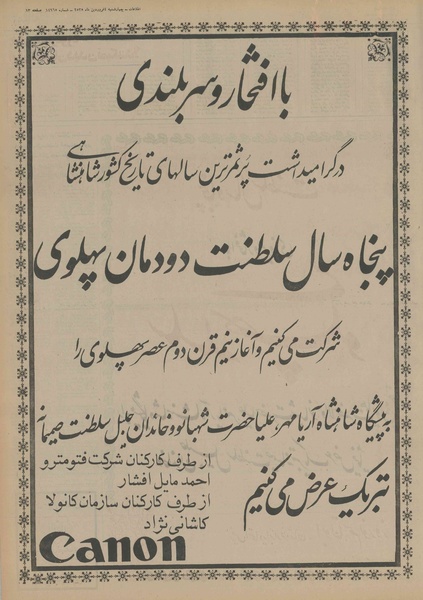 با افتخار و سربلندی
در گرامیداشت پرثمرترین سالهای تاریخ کشور شاهنشاهی
پنجاه سال سلطنت دودمان پهلوی
شرکت می کنیم و آغاز نیم قرن دوم عصر پهلوی را
به پیشگاه شاهنشاه آریامهر، علیاحضرت شهبانو و خاندان جلیل سلطنت صمیمانه
تبریک عرض می کنیم
از طرف کارکنان شرکت فتومترو
احمد مایل افشار
از طرف کارکنان سازمان کانولا
کاشانی نژاد
Canon